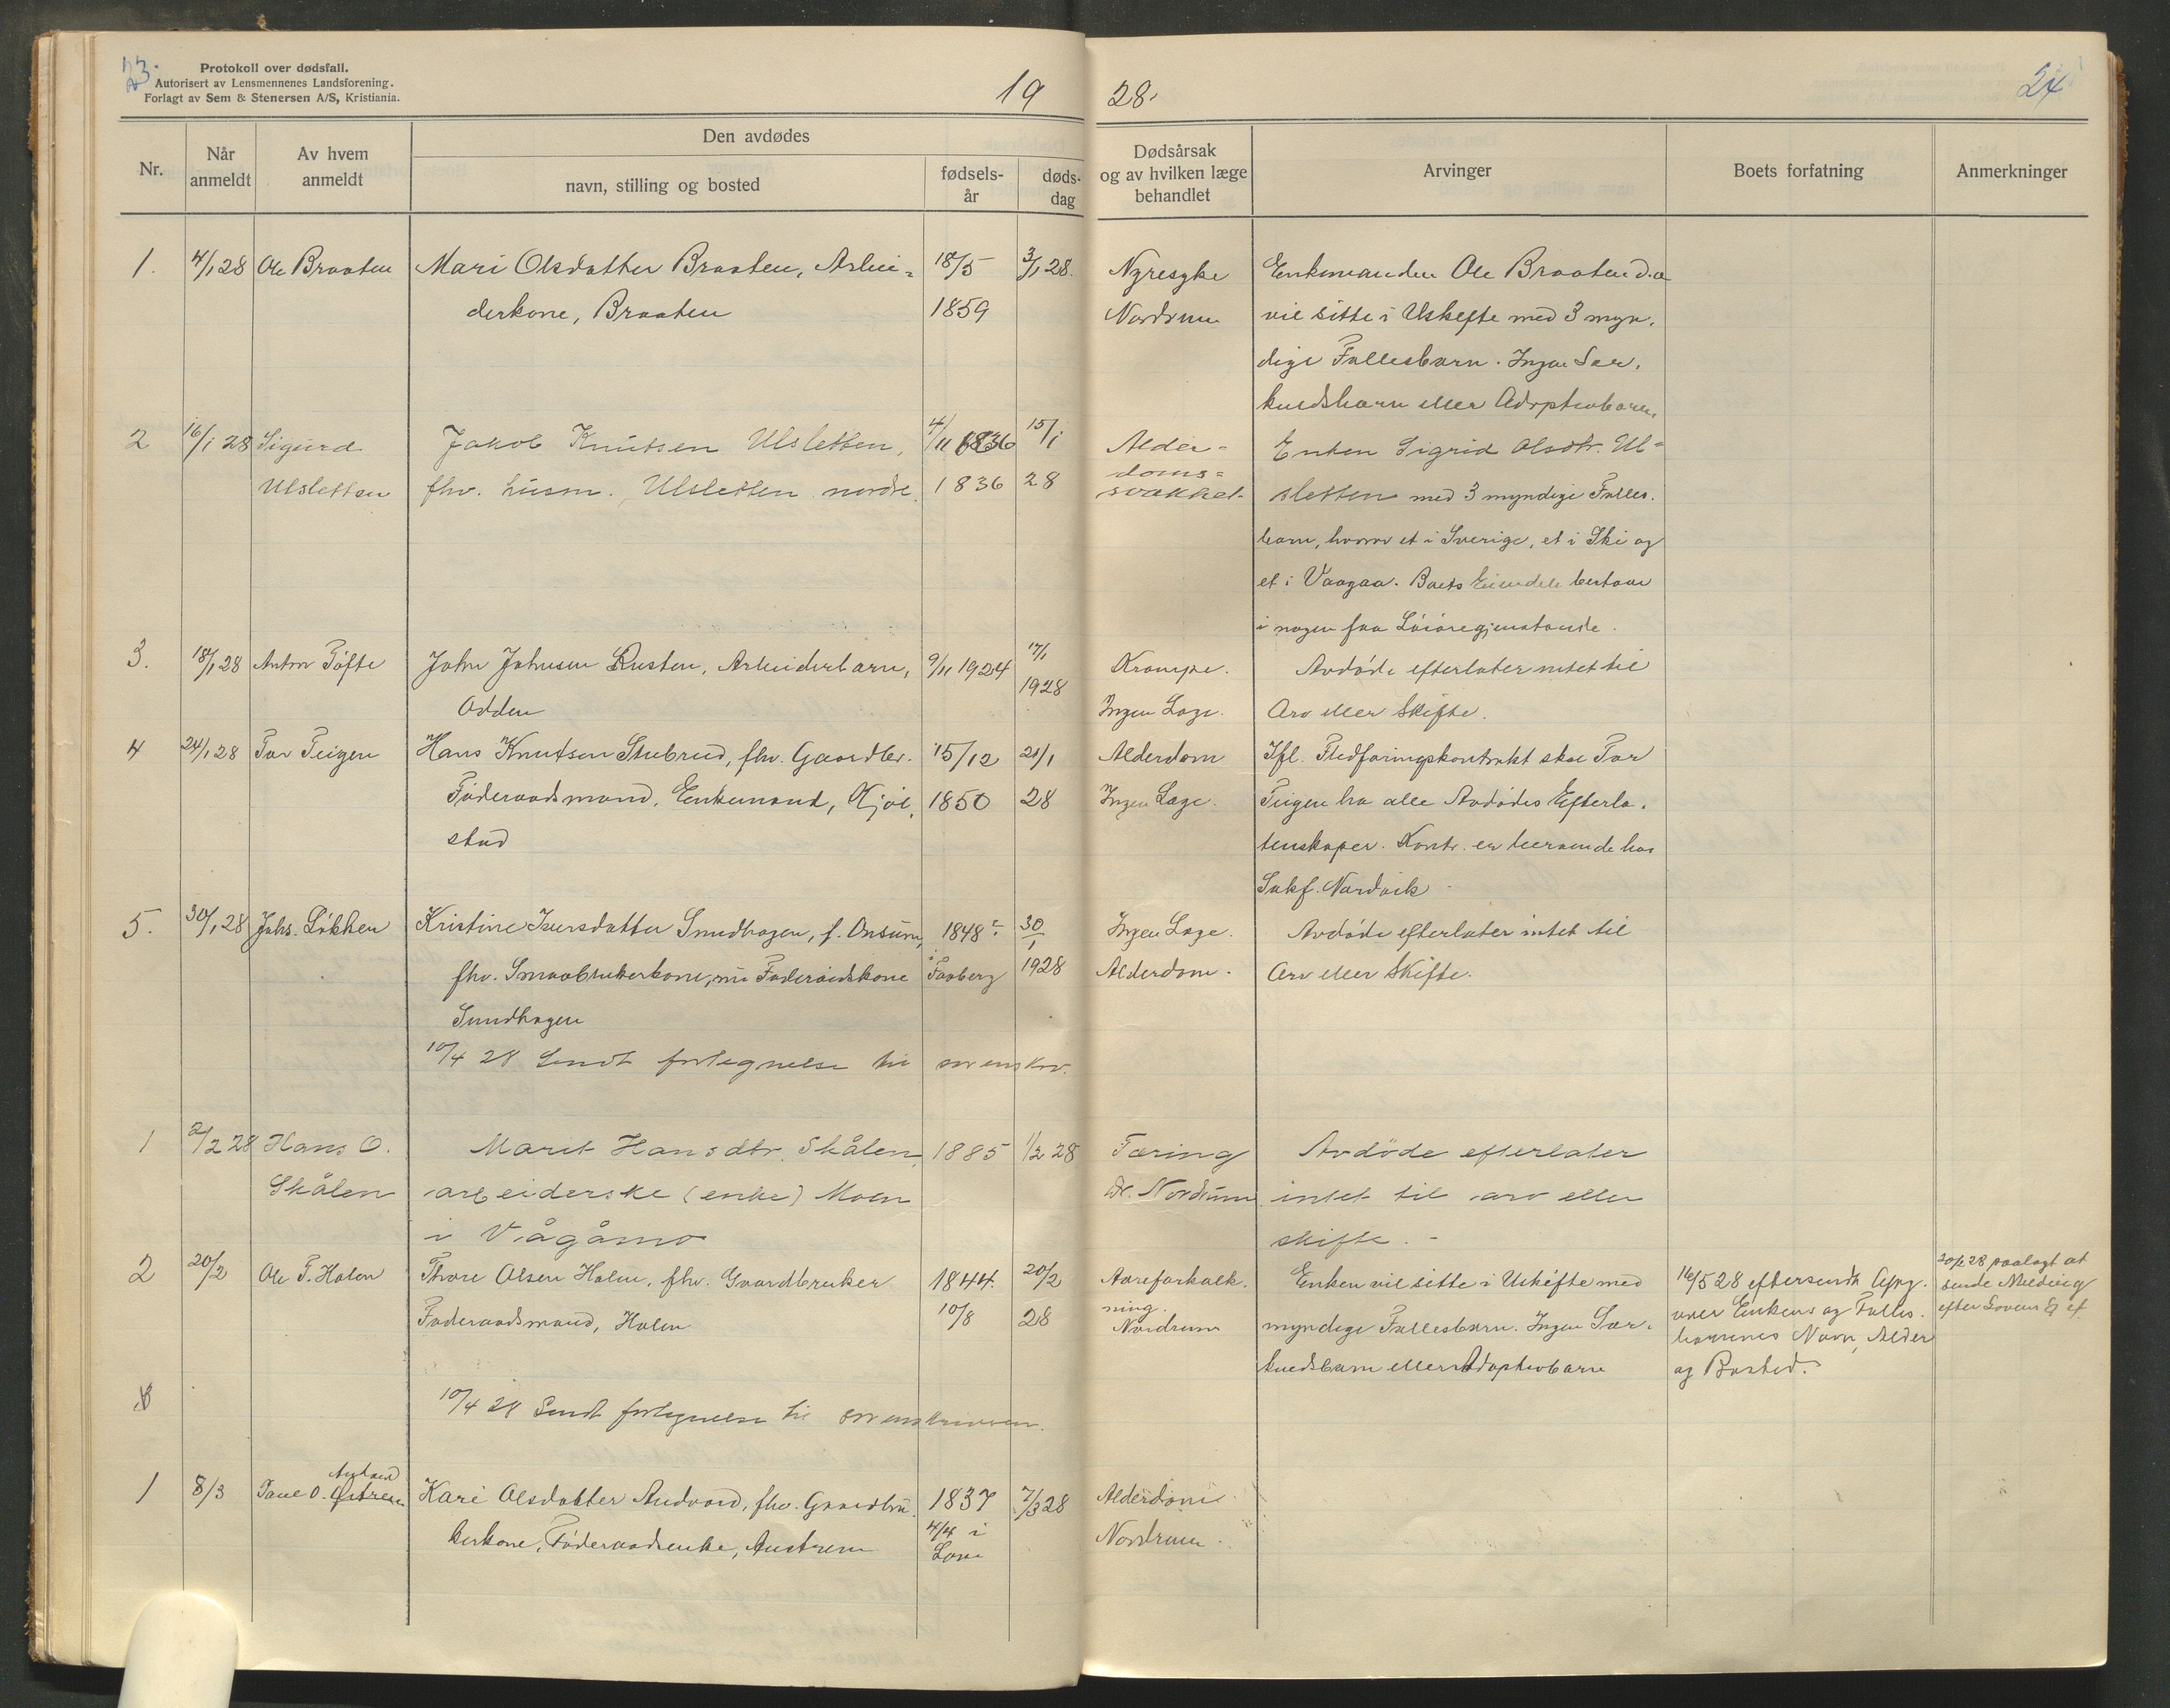 23.
Protokoll over dødsfall.
Autorisert av Lensmennenes Landsforening.
Forlagt av Sem & Stenersen A/S, Kristiania.
19 28.
24
Nr.
Når anmeldt
Av hvem anmeldt
Den avdødes
navn, stilling og bosted
fødsels-år
døds-dag
Dødsårsak
og av hvilken læge
behandlet
Arvinger
Boets forfatning
Anmerkninger
1. 4/1 28 Ole Braaten Mari Olsdatter Braaten, Arbei- 18/5 3/1 28. Nyresyke Enkemanden Ole Braaten d.æ
derkone, Braaten 1859 Nordrum vil sitte i Uskifte med 3 myn-
dige Fællesbarn. Ingen Sær-
kuldsbarn eller Adoptivbarn.
2 16/1 28 Sigurd Jakob Knutsen Ulsletten, 4/11 1836 15/1 Alder- Enken Sigrid Olsdtr. Ul-
Ulsletten fhv. husm. Ulsletten nordre. 1836 28 doms- sletten med 3 myndige Fælles-
svakhet.
barn, hvorav et i Sverige, et i Ski og
et i Vaagaa. Boets Eiendele bestaar
i nogen faa Løsøregjenstande.
3. 18/1 28 Anton Tofte John Johnsen Rusten, Arbeiderbarn, 9/11 1924 17/1 Krampe. Avdøde efterlater intet til
Odden 1928 Ingen Læge. Arv eller Skifte.
4 24/1 28 Tor Teigen Hans Knutsen Stubrud, fhv. Gaardbr. 15/12 21/1 Alderdom Ifl. Fledføringskontrakt skal Tor
Føderaadsmand, Enkemand, Kjøl- 1850 28 Ingen Læge. Teigen ha alle Avdødes Efterla-
stad tenskaper. Kontr. er beroende hos
Sakf. Nordvik
5. 30/1 28 Johs. Løkken Kristine Iversdatter Smedhagen, f. Onsum, 1848 30/1 Ingen Læge. Avdøde efterlater intet til
fhv. Smaabrukerkone, nu Føderaadskone i Faaberg 1928 Alderdom. Arv eller Skifte.
Smedhagen
10/4 28 Sendt fortegnelse til sorenskr.
1 2/2 28 Hans O. Marit Hansdtr. Skålen, 1885 1/2 28 Tæring Avdøde efterlater
Skålen arbeiderske (enke) Moen Dr. Nordrum intet til arv eller
i Vågåmo skifte. -
2 20/2 Ole T. Holen Thore Olsen Holen, fhv. Gaardbruker 1844. 20/2 Aareforkalk- Enken vil sitte i Uskifte med 16/5 28 eftersendt Opg. 20/2 28 paalagt at
Føderaadsmand, Holen 10/8 28 ning. myndige Fællesbarn. Ingen Sær- over Enkens og Fælles- sende Melding
Nordrum kuldsbarn eller Adoptivbarn barnenes Navn, Alder efter Lovens §
og Bosted.
10/4 28 Sendt fortegnelse til sorenskriveren.
1 8/3 Paul O. Øistrem Kari Olsdatter Andvord, fhv. Gaardbru- 1837 7/3 28 Alderdom
kerkone, Føderaadsenke, Austrem 4/4 i Lom Nordrum.